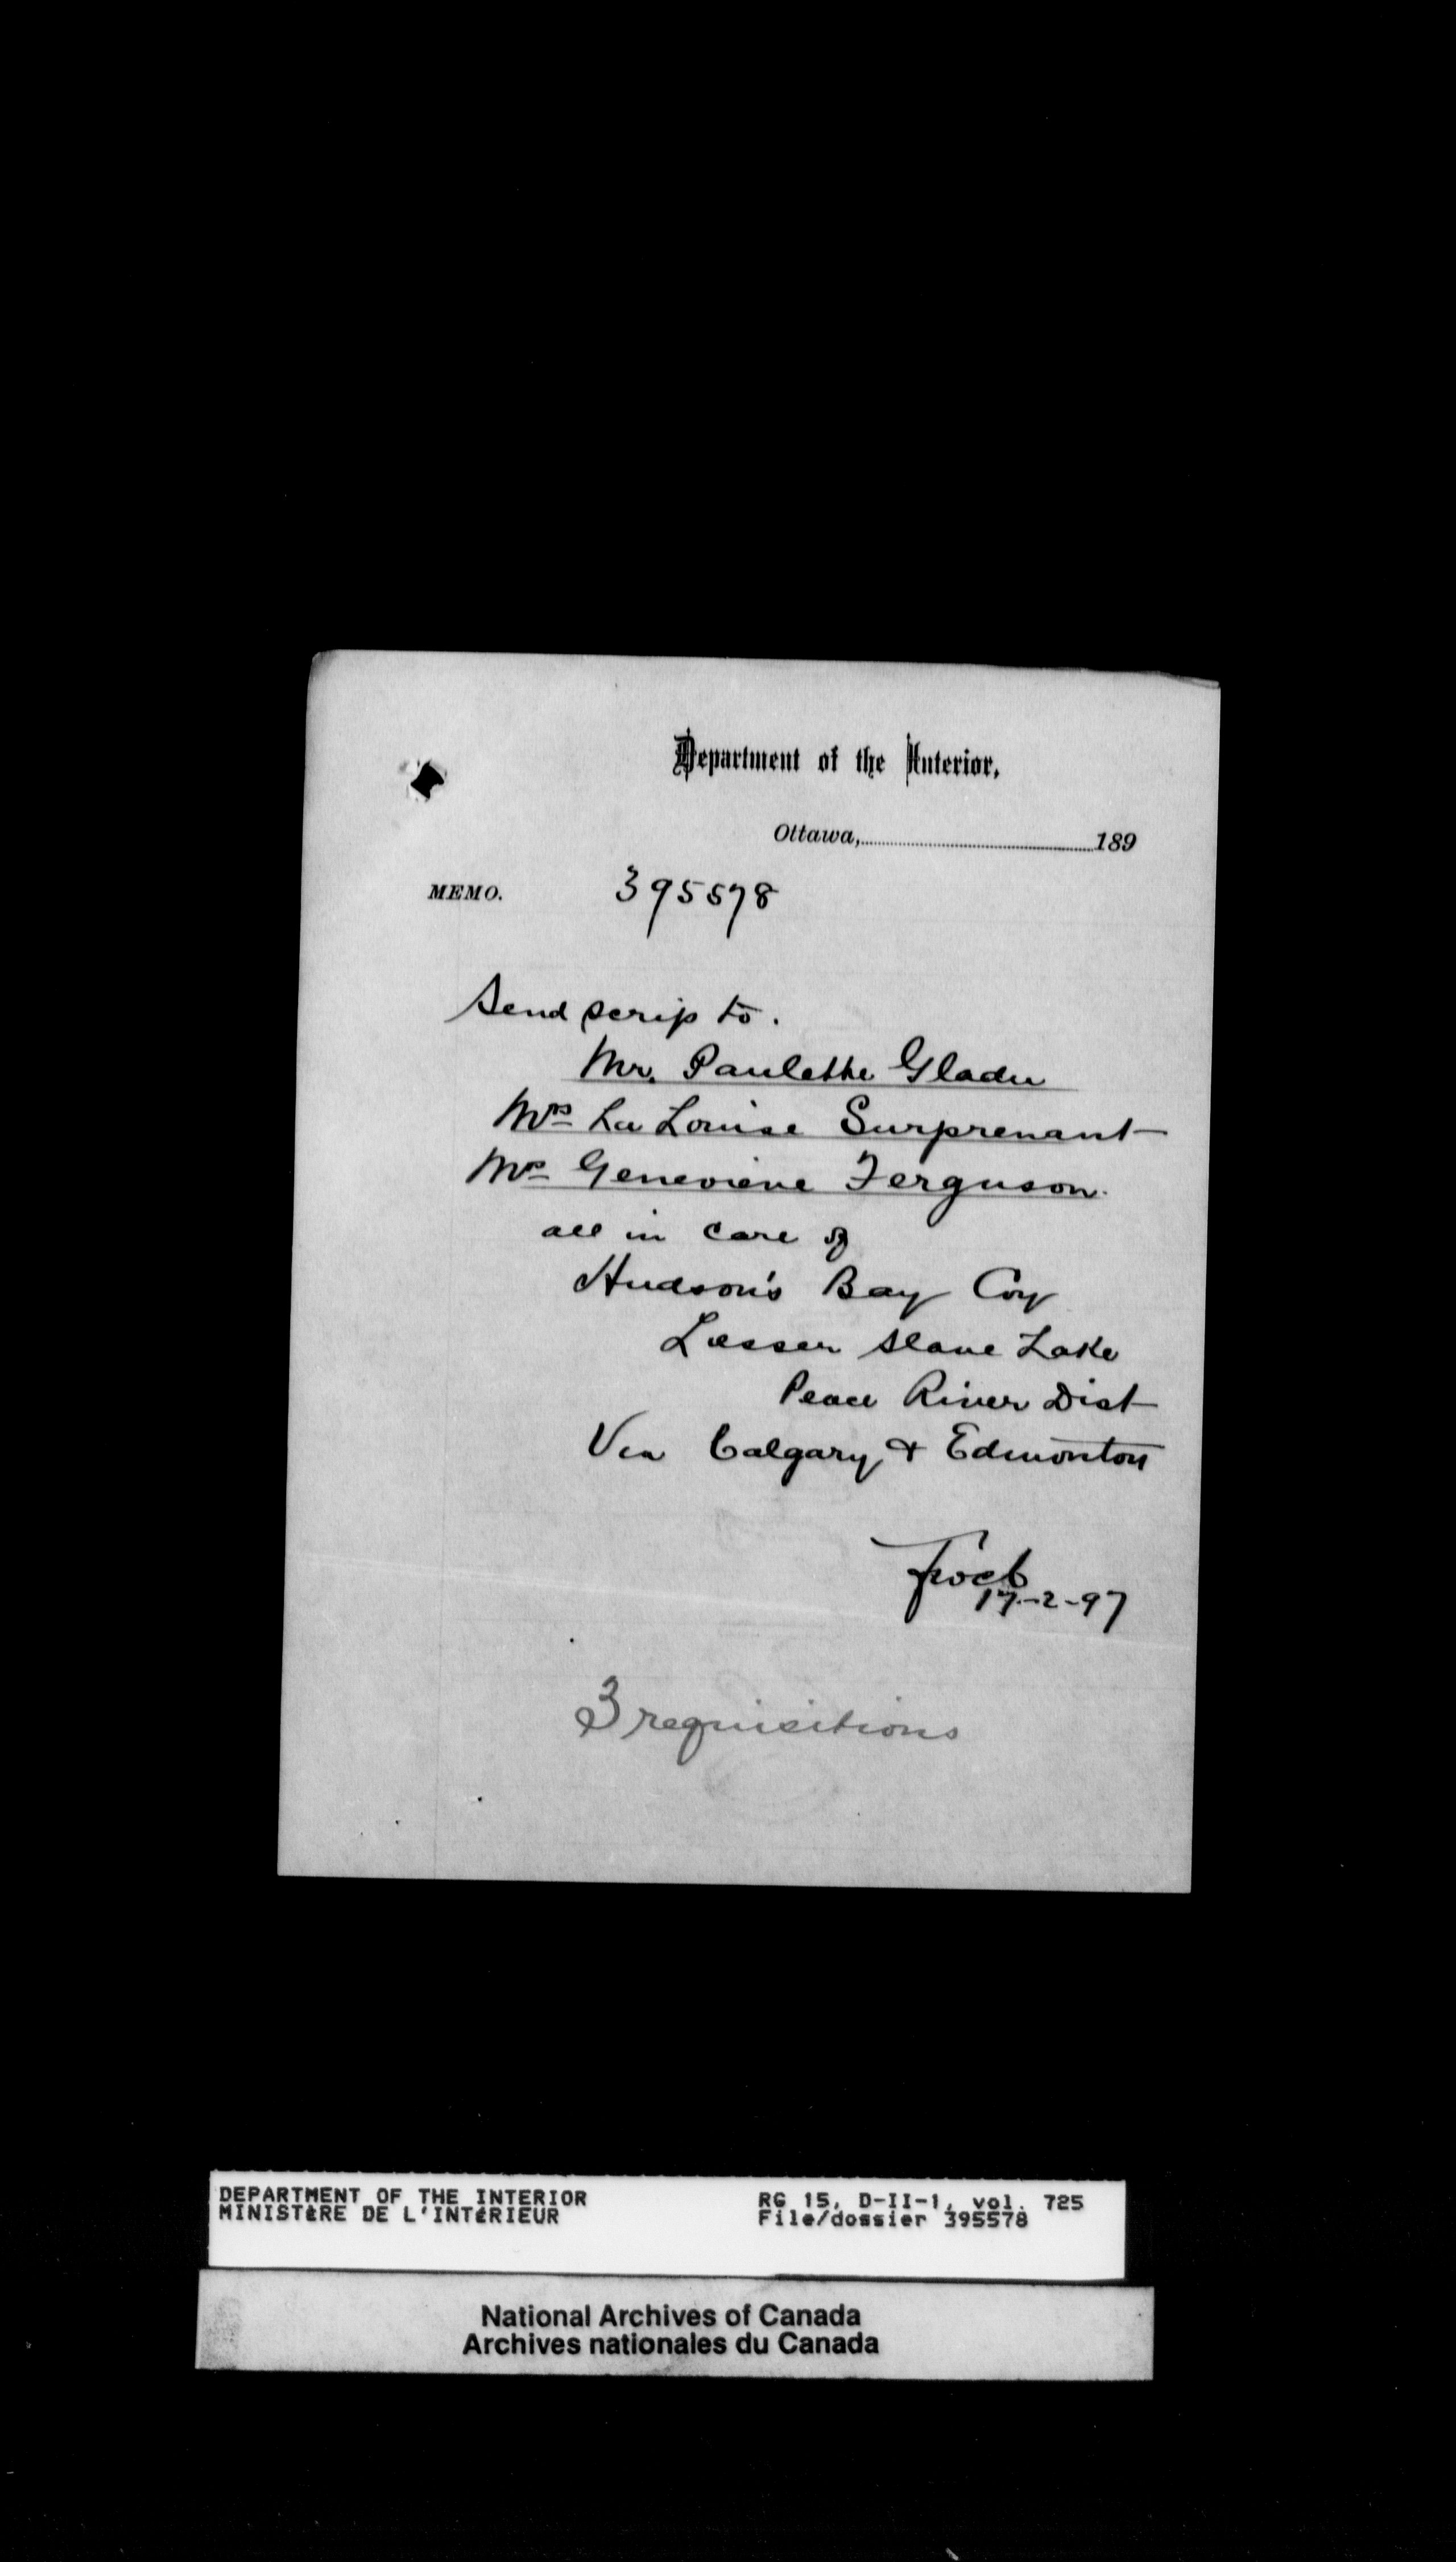 Department of the Interior,
Ottawa,..........189
MEMO. 395578
Send scrip to.
Mr. Paulette Gladu
Mrs La Louise Surprenant
Mrs Genevieve Ferguson.
all in care of
Hudson's Bay Coy
Lesser Slave Lake
Peace River Dist
Via Calgary & Edmonton
17-2-97
3 requisitions
DEPARTMENT OF THE INTERIOR RG 15, D-II-1, vol. 725
MINISTÈRE DE L'INTÉRIEUR File/dossier 395578
National Archives of Canada
Archives nationales du Canada